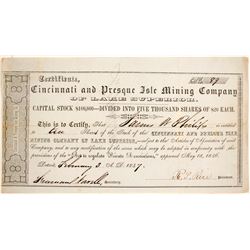 Certificate,
No. 89
Cincinnati and Presque Isle Mining Company
OF LAKE SUPERIOR.
CAPITAL STOCK $100,000—DIVIDED INTO FIVE THOUSAND SHARES OF $20 EACH.
This is to Certify, That James W. Phillips is entitled
to ten Shares of the Stock of the CINCINNATI AND PRESQUE ISLE
MINING COMPANY OF LAKE SUPERIOR, subject to the Articles of Association of said
Company, and any modification of the same which may be adopted in conformity with the
provisions of the approved May 11, 1846.
Dated, February 3 A. D. 1857.
Secretary.